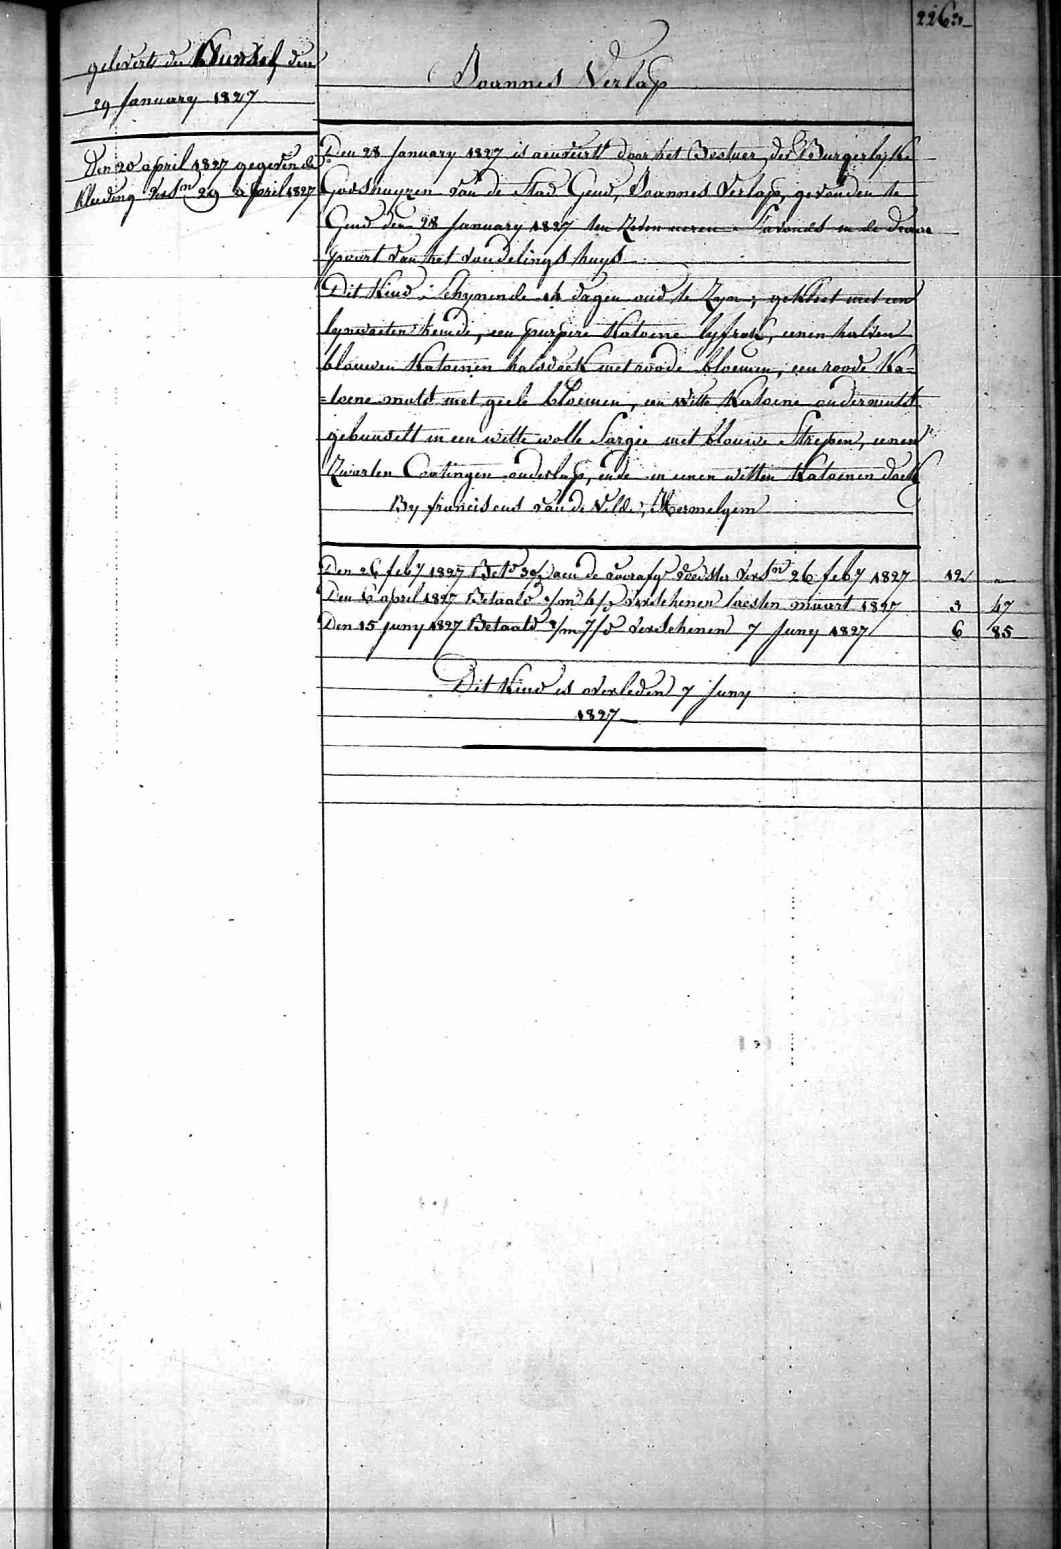 2263
geleverd de Bundsel den
29 January 1827
Den 20 april 1827 gegeven de
Kleeding versn 29 april 1827
Joannes Verlap
Den 28 January 1827 is aenveird door het Bestuer der Burgerlyke
Godshuyzen van de Stad Gend, Joannes Verlap, gevonden te
Gend den 28 January 1827 ten zeven ueren 's avonds in de draai
poort van het vondelings huys
Dit Kind schynende 14 dagen oud te zyn; gekleet met een
lynwaeten hemde, een purpere katoene lyfrok, eenen halven
blauwen katoenen halsdoek met roode bloemen, een roode ka=
=toene muts met geele bloemen, een witte katoene ondermuts
gebunselt in een witte wolle sargie met blauwe strepen, eenen
zwarten Coatingen onderlap, ende in eenen witten katoenen doek
By franciscus van de Velde, Hermelgem
Den 26 feby 1827 Betd aen de voorsz voedster versn 26 feby 1827 12 "
Den 16 april 1827 Betaald verschenen laesten maart 1827 3 47
Den 15 juny 1827 Betaald verschenen 7 Juny 1827 6 85
Dit Kind is overleden 7 Juny
1827